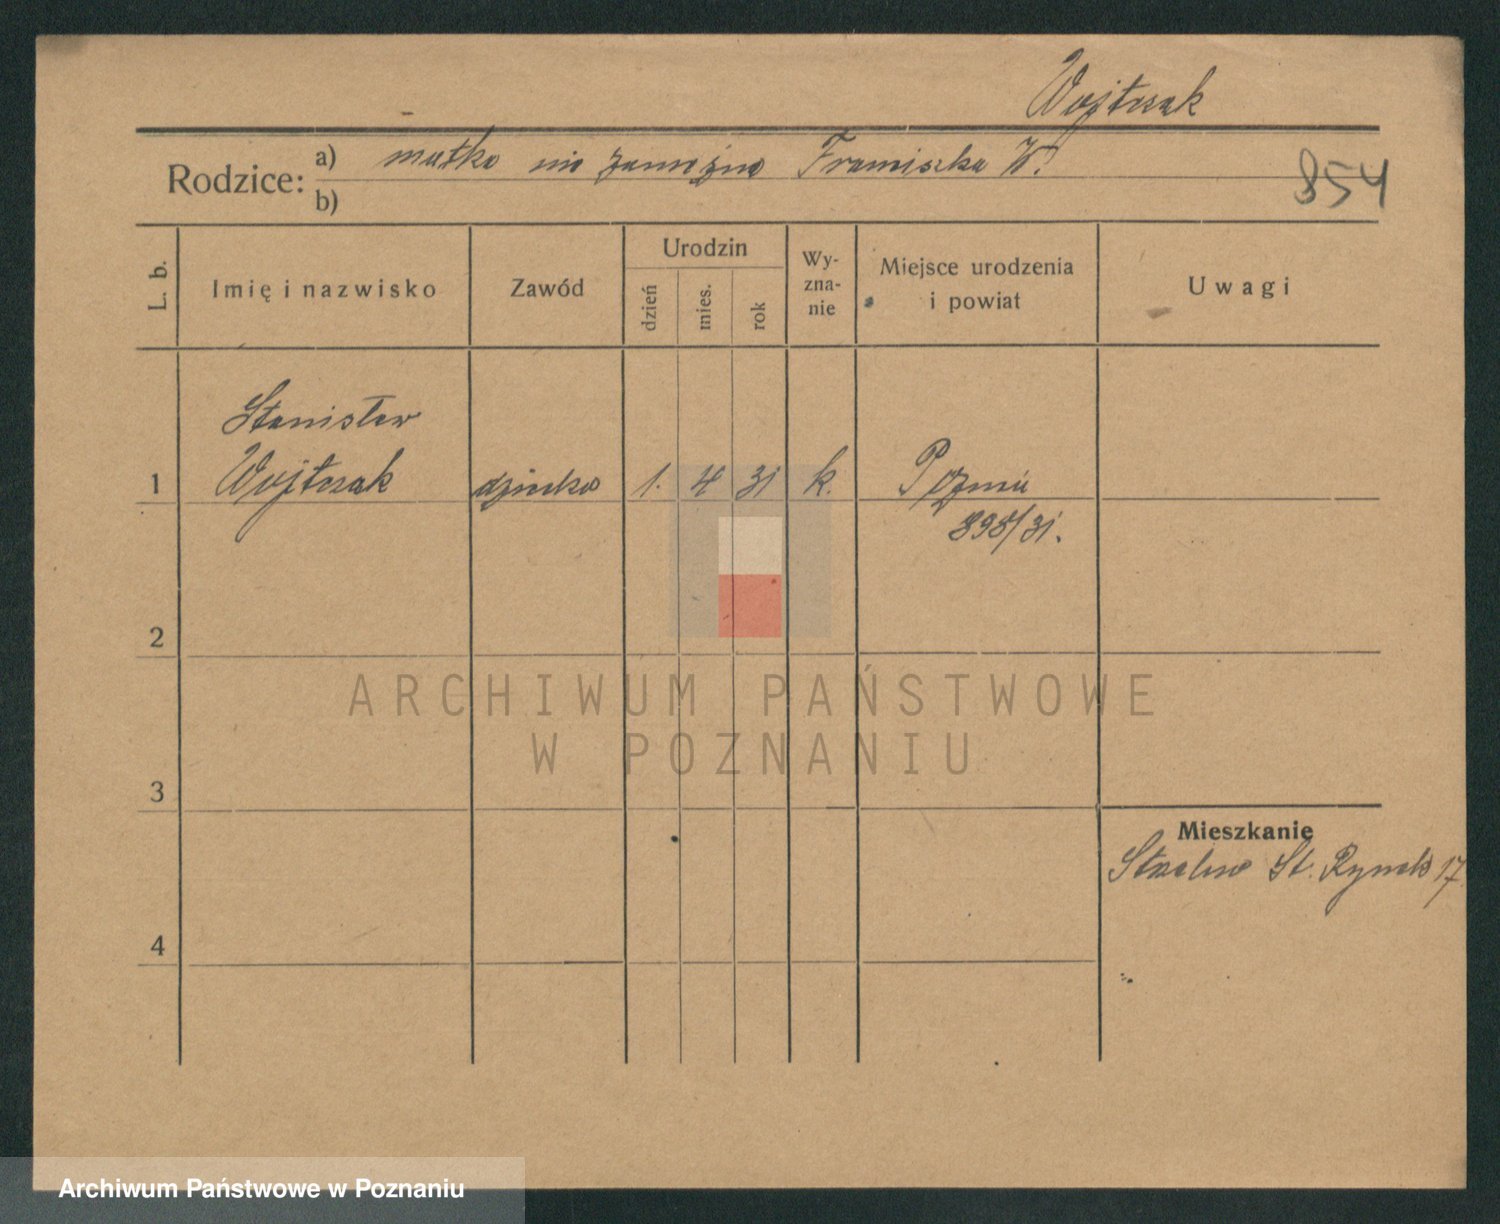 Wojtczak
Rodzice: a) matka nie zamężna Franciszka W.
b)
854
L. b. Imię i nazwisko Zawód Urodzin dzień mies. rok Wy-
zna-
nie Miejsce urodzenia
i powiat Uwagi
Stanisław
1 Wojtczak dziecko 1. 4 31 k. Poznań
898/31.
2
ARCHIWUM PAŃSTWOWE
W POZNANIU
3
Mieszkanie
St. Rynek 17
4
Archiwum Państwowe w Poznaniu